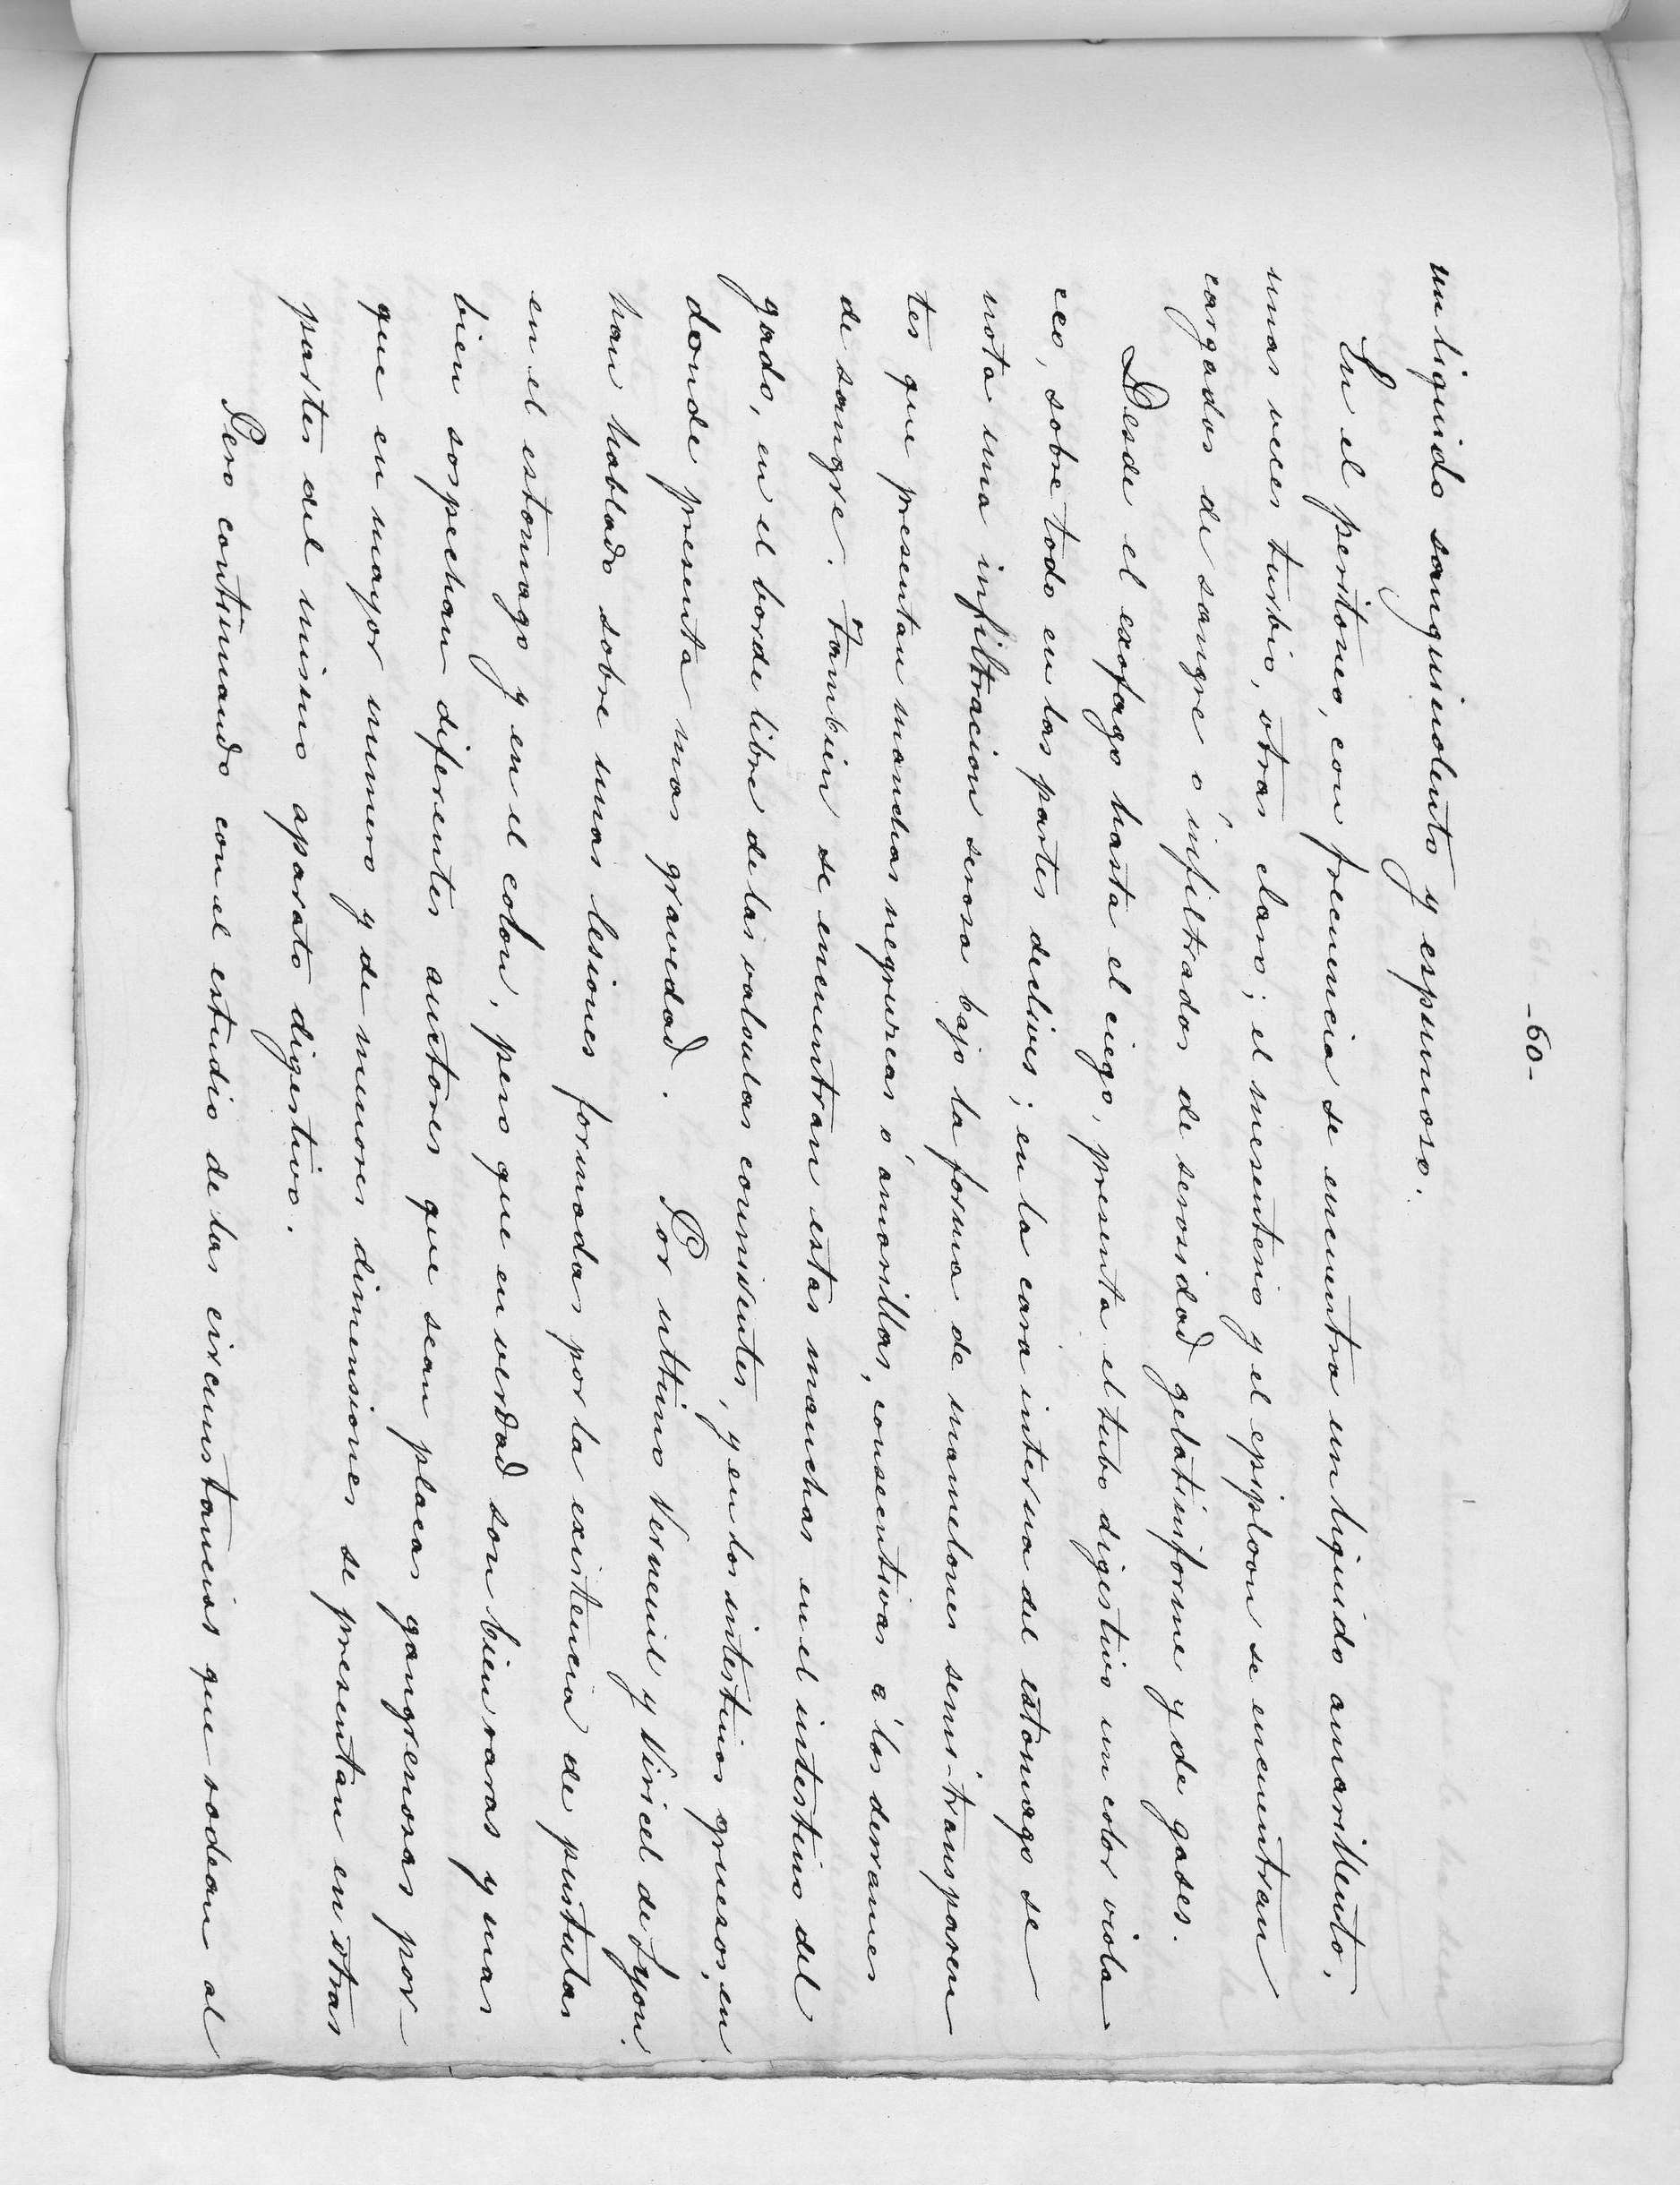 -60-
un liquido sanguinolento y espumoso.
En el peritoneo, con frecuencia se encuentra un liquido amarillento,
unas veces turbio, otras claro; el mesenterio y el epiploon se encuentran
cargados de sangre ó infiltrados de serosidad gelatiniforme y de gases.
Desde el exofago hasta el ciego, presenta el tubo digestivo un color viola
ceo, sobre todo en las partes declives; en la cara interna del estomago se
nota una infiltracion serosa bajo la forma de mamelones semi-transparen
tes que presentan manchas negruzcas ó amarillas, consecutivas á los derrames
de sangre. Tambien se encuentran estas manchas en el intestino del
gado, en el borde libre de las valvulas conniventes, y en los intestinos gruesos, en
donde presenta mas gravedad. Por ultimo Verneuil y Viricel de Lyon
han hablado sobre unas lesiones formadas por la existencia de pustulas
en el estomago y en el colon, pero que en verdad son bien raras y mas
bien sospechan diferentes autores que sean placas gangrenosas por
que en mayor numero y de menores dimensiones se presentan en otras
partes del mismo aparato digestivo.
Pero continuando con el estudio de las circunstancias que rodean al